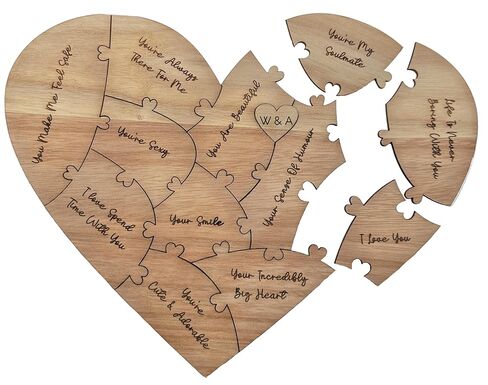 You Make Me Feel Safe
You're Always
There For Me
You're Sexy
You Are Beautiful
W & A
Your Sense Of Humour
You're My
Soulmate
Life Is Never
Boring With You
I Love You
I Love Spend
Time With You
Your Smile
Your Incredibly
Big Heart
You're
Cute & Adorable